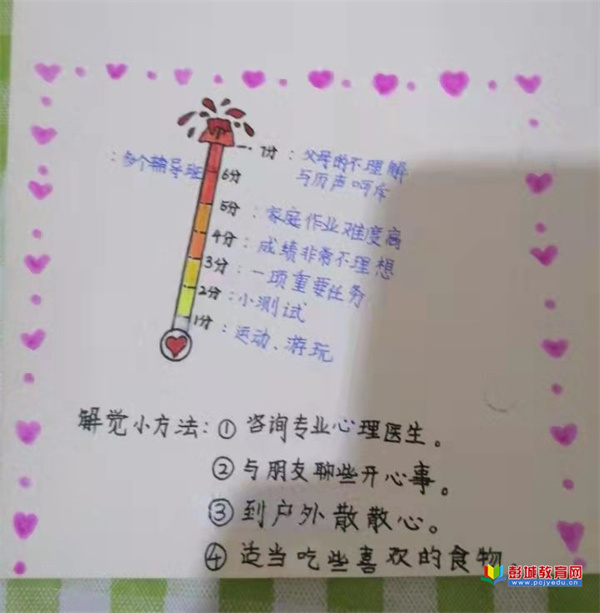 7分：父母的不理解
与历声呵斥
：多个辅导班 6分
5分：家庭作业难度高
4分：成绩非常不理想
3分：一项重要任务
2分：小测试
1分：运动、游玩
解觉小方法：① 咨询专业心理医生。
② 与朋友聊些开心事。
③ 到户外散散心。
④ 适当吃些喜欢的食物
彭城教育网
www.pcjyedu.cn